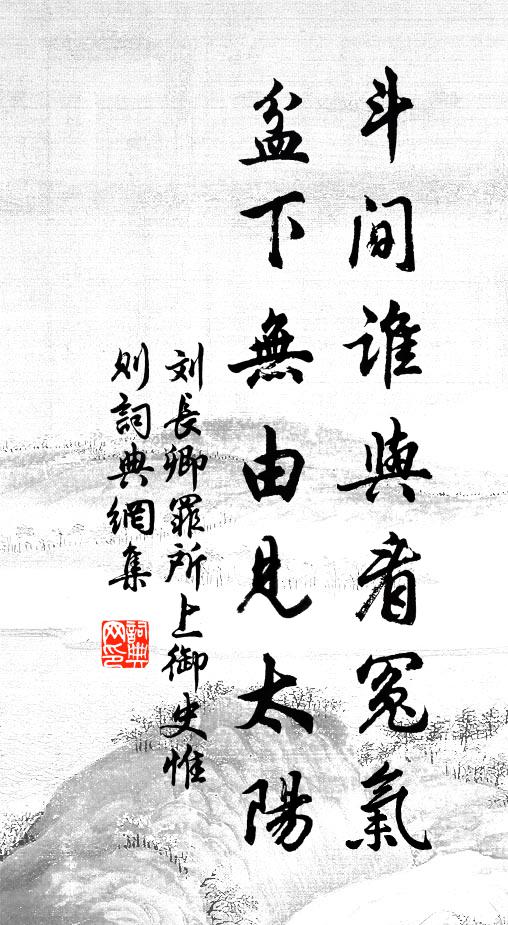 斗間誰與看冤氣
盆下無由見太陽
刘長卿罪所上御史惟
則詞典網集
詞典网印